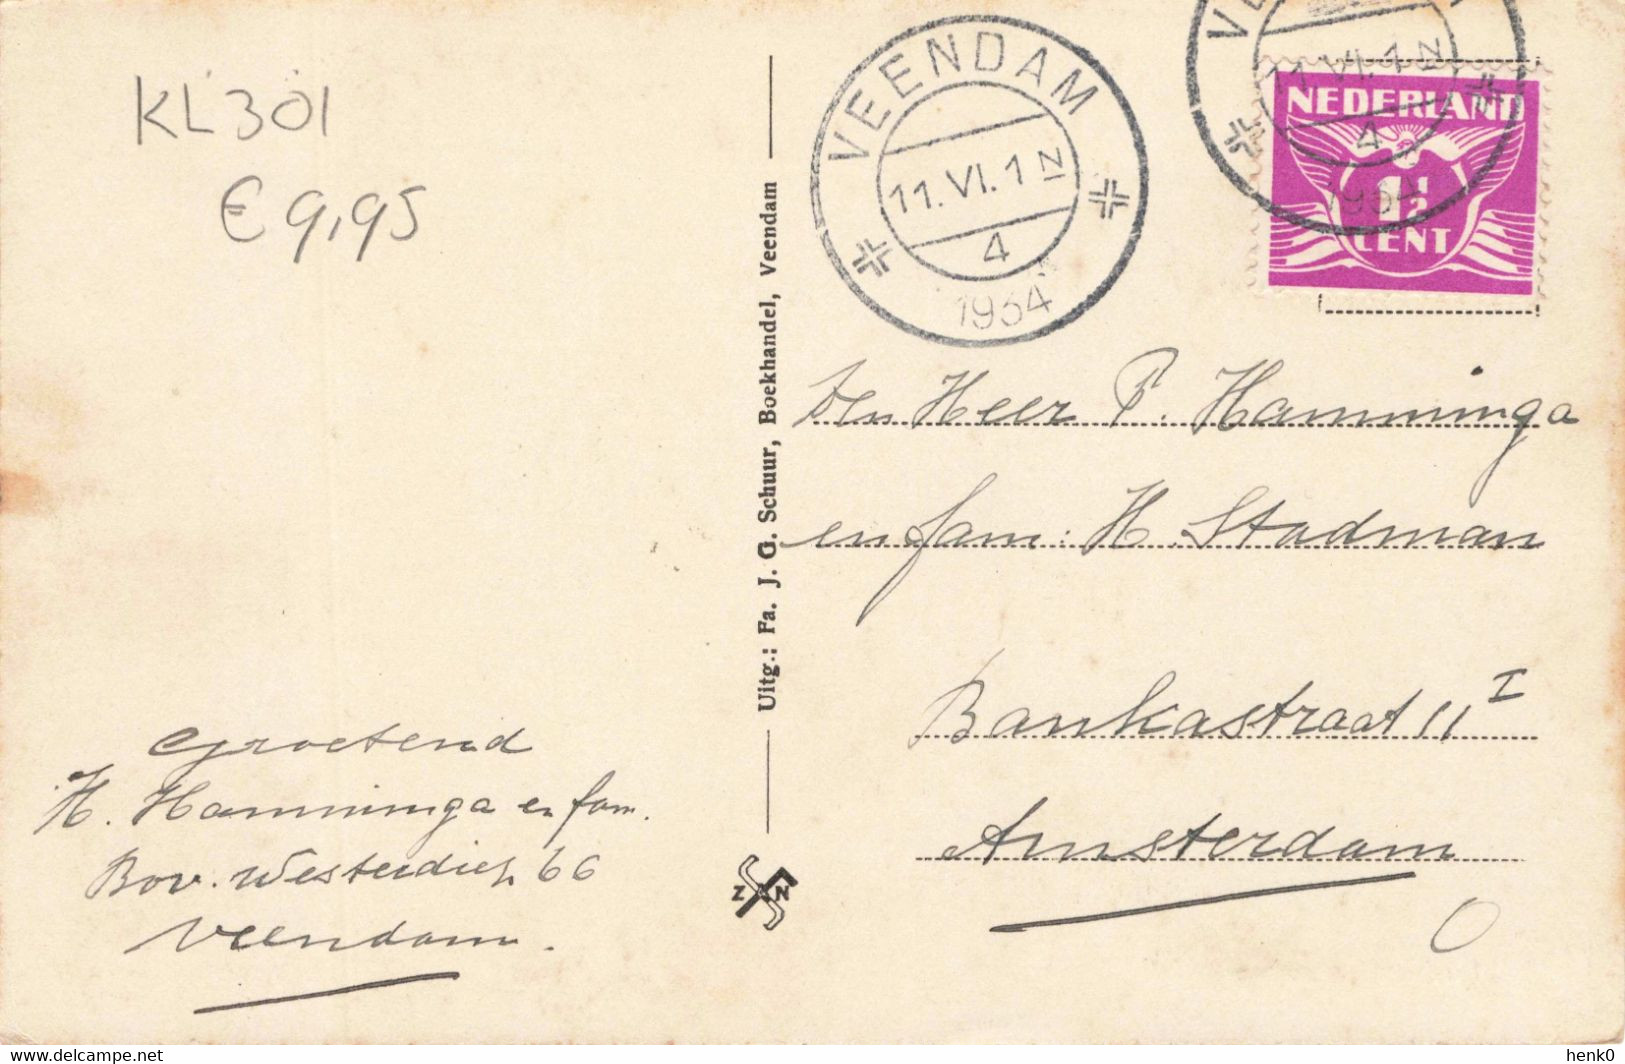 KL301
€ 9,95
VEENDAM
11.VI.1 N
4
1934
11.VI.1 N
4
1934
NEDERLAND
1½
CENT
Uitg.: Fa. J. G. Schuur, Boekhandel, Veendam
Z N
den Heer P. Hamminga
en fam: H. Stadman
Bankastraat 11 I
Amsterdam
Groetend
H. Hamminga en fam.
Bov. Westerdiep 66
Veendam.
henk0